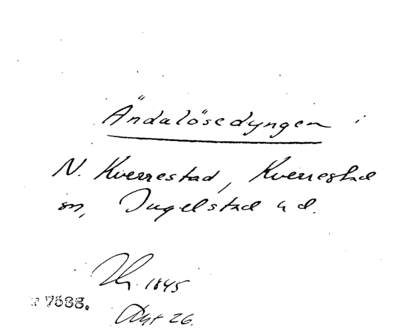 Ändalösedyngen i
N. Kverrestad, Kverrestad
sn, Ingelstad hd.
1845
7588.
26.